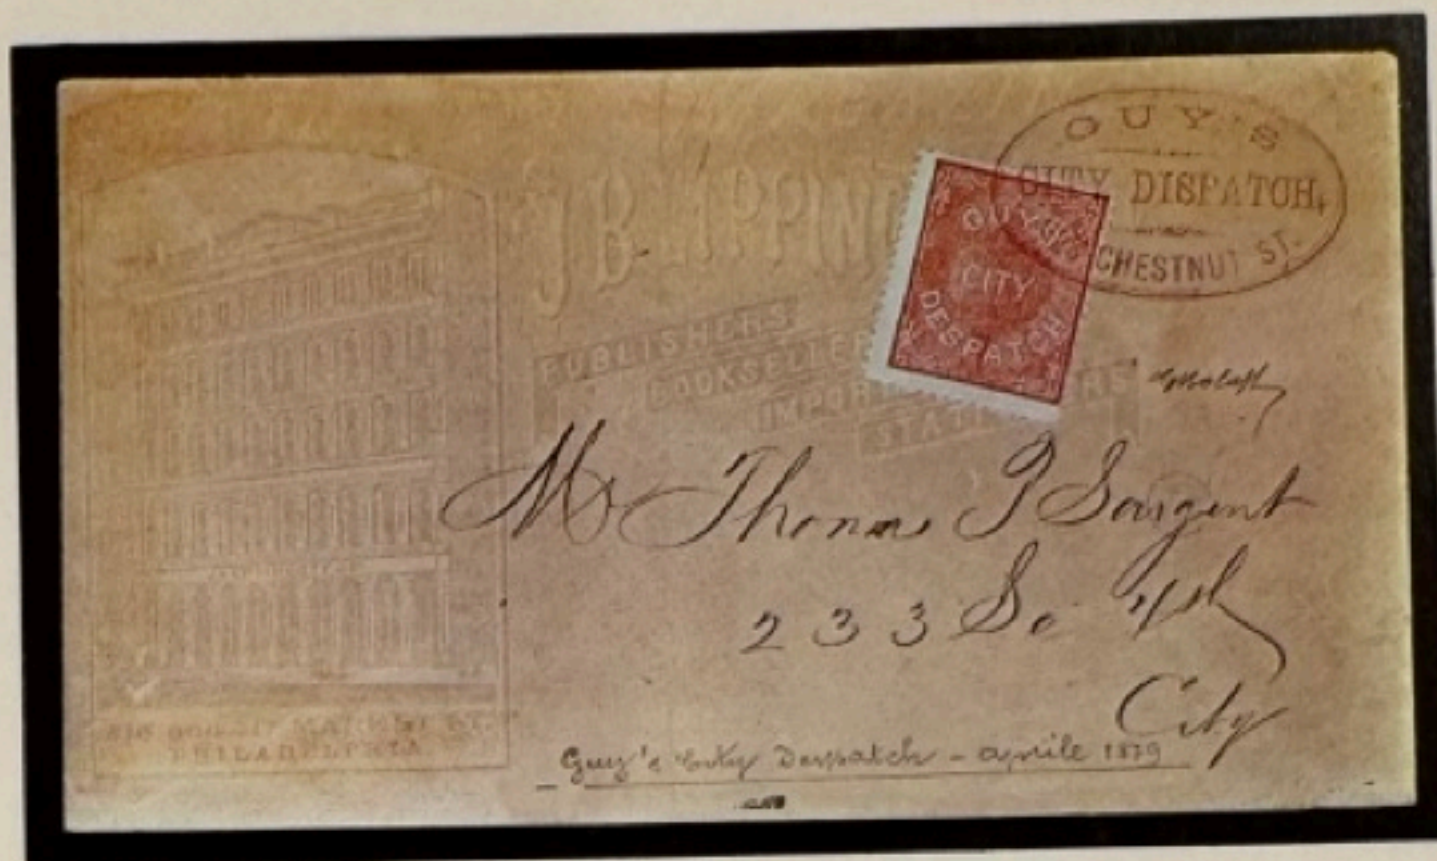 GUY'S
CITY DISPATCH,
CHESTNUT ST.
GUY'S
CITY
DESPATCH
J.B. LIPPINC
PUBLISHERS
BOOKSELLE
IMPOR
STA
Mr Thomas P Sargent
233 So 4th
City
MARKET ST.
PHILADELPHIA
Guy's City Despatch - aprile 1879